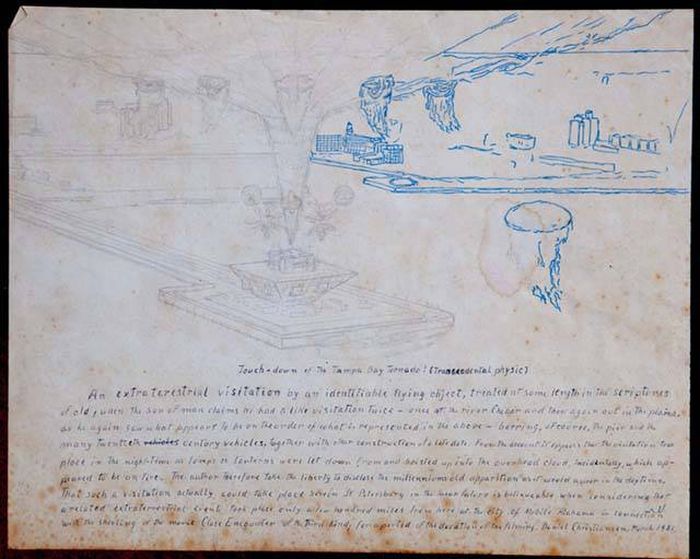 Touch-down of the Tampa Bay Tornado! (Transcedental physic)
An extraterestrial visitation by an identifiable flying object, treated at some length in the scriptures
of old, when the son of man claims he had a like visitation twice - once at the river Chebar and then again out in the plains,
as he again saw what appears to be on the order of what is represented in the above - barring, of course, the pier and the
many twentieth vehicles century vehicles, together with other construction of a late date. From the account it appears that the visitation took
place in the night-time as lamps or lanterns were let down from and hoisted up into the overhead cloud, incidentaly, which ap-
peared to be on fire. The author therefore take the liberty to disclose the millenniom old apparition as it would appear in the daytime.
That such a visitation actually could take place herein St. Petersburg in the near future is believeable when considering that
a related extraterrestrial event took place only a few hundred miles from here at the City of Mobile Alabama in connection
with the shooting of the movie Close Encounter of the third kind, for a period of the duration of the filming. Daniel Christiansen, March 198